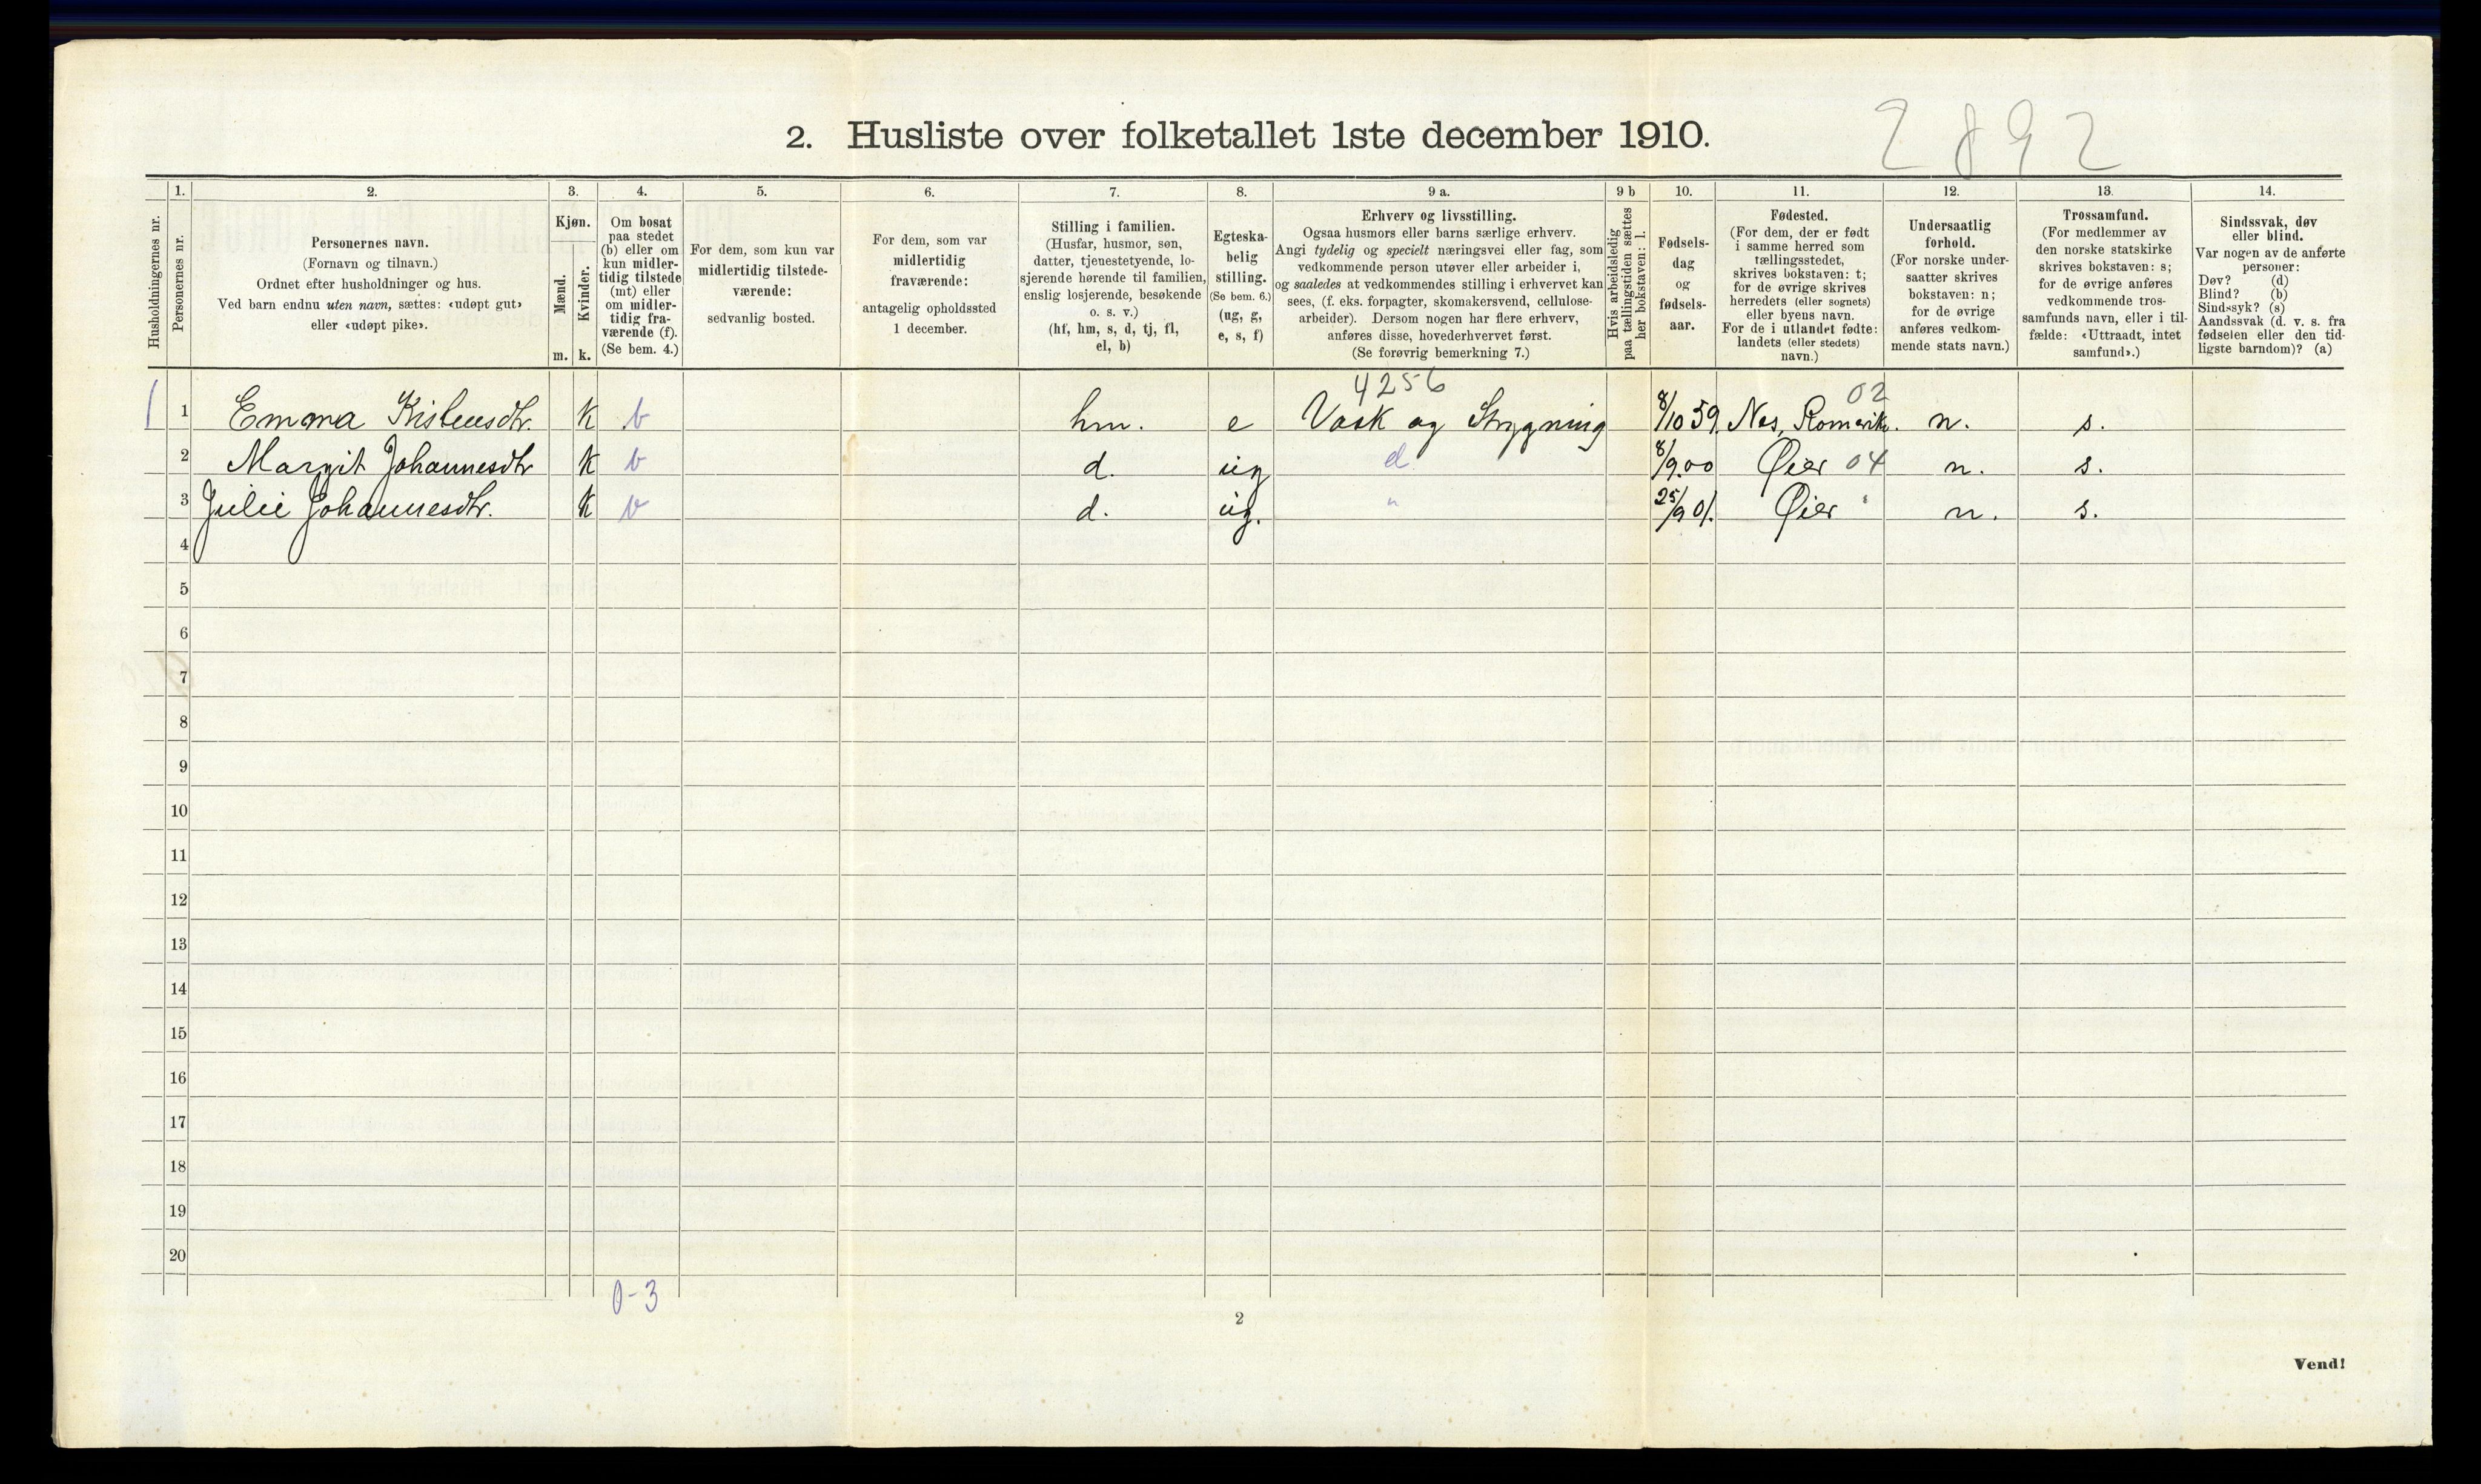 2892
2. Husliste over folketallet 1ste december 1910.
1. 2. 3. 4. 5. 6. 7. 8. 9 a. 9 b 10. 11. 12. 13. 14.
Husholdningernes nr.
Personernes nr.
Personernes navn.
(Fornavn og tilnavn.)
Ordnet efter husholdninger og hus.
Ved barn endnu uten navn, sættes: «udøpt gut»
eller «udøpt pike».
Kjøn.
Mænd.
Kvinder.
m. k.
Om bosat
paa stedet
(b) eller om
kun midler-
tidig tilstede
(mt) eller
om midler-
tidig fra-
værende (f).
(Se bem. 4.)
For dem, som kun var
midlertidig tilstede-
værende:
sedvanlig bosted.
For dem, som var
midlertidig
fraværende:
antagelig opholdssted
1 december.
Stilling i familien.
(Husfar, husmor, søn,
datter, tjenestetyende, lo-
sjerende hørende til familien,
enslig losjerende, besøkende
o. s. v.)
(hf, hm, s, d, tj, fl,
el, b)
Egteska-
belig
stilling.
(Se bem. 6.)
(ug, g,
e, s, f)
Erhverv og livsstilling.
Ogsaa husmors eller barns særlige erhverv.
Angi tydelig og specielt næringsvei eller fag, som
vedkommende person utøver eller arbeider i,
og saaledes at vedkommendes stilling i erhvervet kan
sees, (f. eks. forpagter, skomakersvend, cellulose-
arbeider). Dersom nogen har flere erhverv,
anføres disse, hovederhvervet først.
(Se forøvrig bemerkning 7.)
Hvis arbeidsledig
paa tællingstiden sættes
her bokstaven: l.
Fødsels-
dag
og
fødsels-
aar.
Fødested.
(For dem, der er født
i samme herred som
tællingsstedet,
skrives bokstaven: t;
for de øvrige skrives
herredets (eller sognets)
eller byens navn.
For de i utlandet fødte:
landets (eller stedets)
navn.)
Undersaatlig
forhold.
(For norske under-
saatter skrives
bokstaven: n;
for de øvrige
anføres vedkom-
mende stats navn.)
Trossamfund.
(For medlemmer av
den norske statskirke
skrives bokstaven: s;
for de øvrige anføres
vedkommende tros-
samfunds navn, eller i til-
fælde: «Uttraadt, intet
samfund».)
Sindssvak, døv
eller blind.
Var nogen av de anførte
personer:
Døv? (d)
Blind? (b)
Sindssyk? (s)
Aandssvak (d. v. s. fra
fødselen eller den tid-
ligste barndom)? (a)
4256 02
1 1 Emma Kristensdtr. K b hm. e Vask og Strygning 8/10 59. Nes, Romerike. n. s.
2 Margit Johannesdtr K b d. ug d 8/9.00 Øier 04 n. s.
3 Julie Johannesdtr. K b d. ug. " 25/9 01. Øier " n. s.
4
5
6
7
8
9
10
11
12
13
14
15
16
17
18
19
20
0-3
2
Vend!